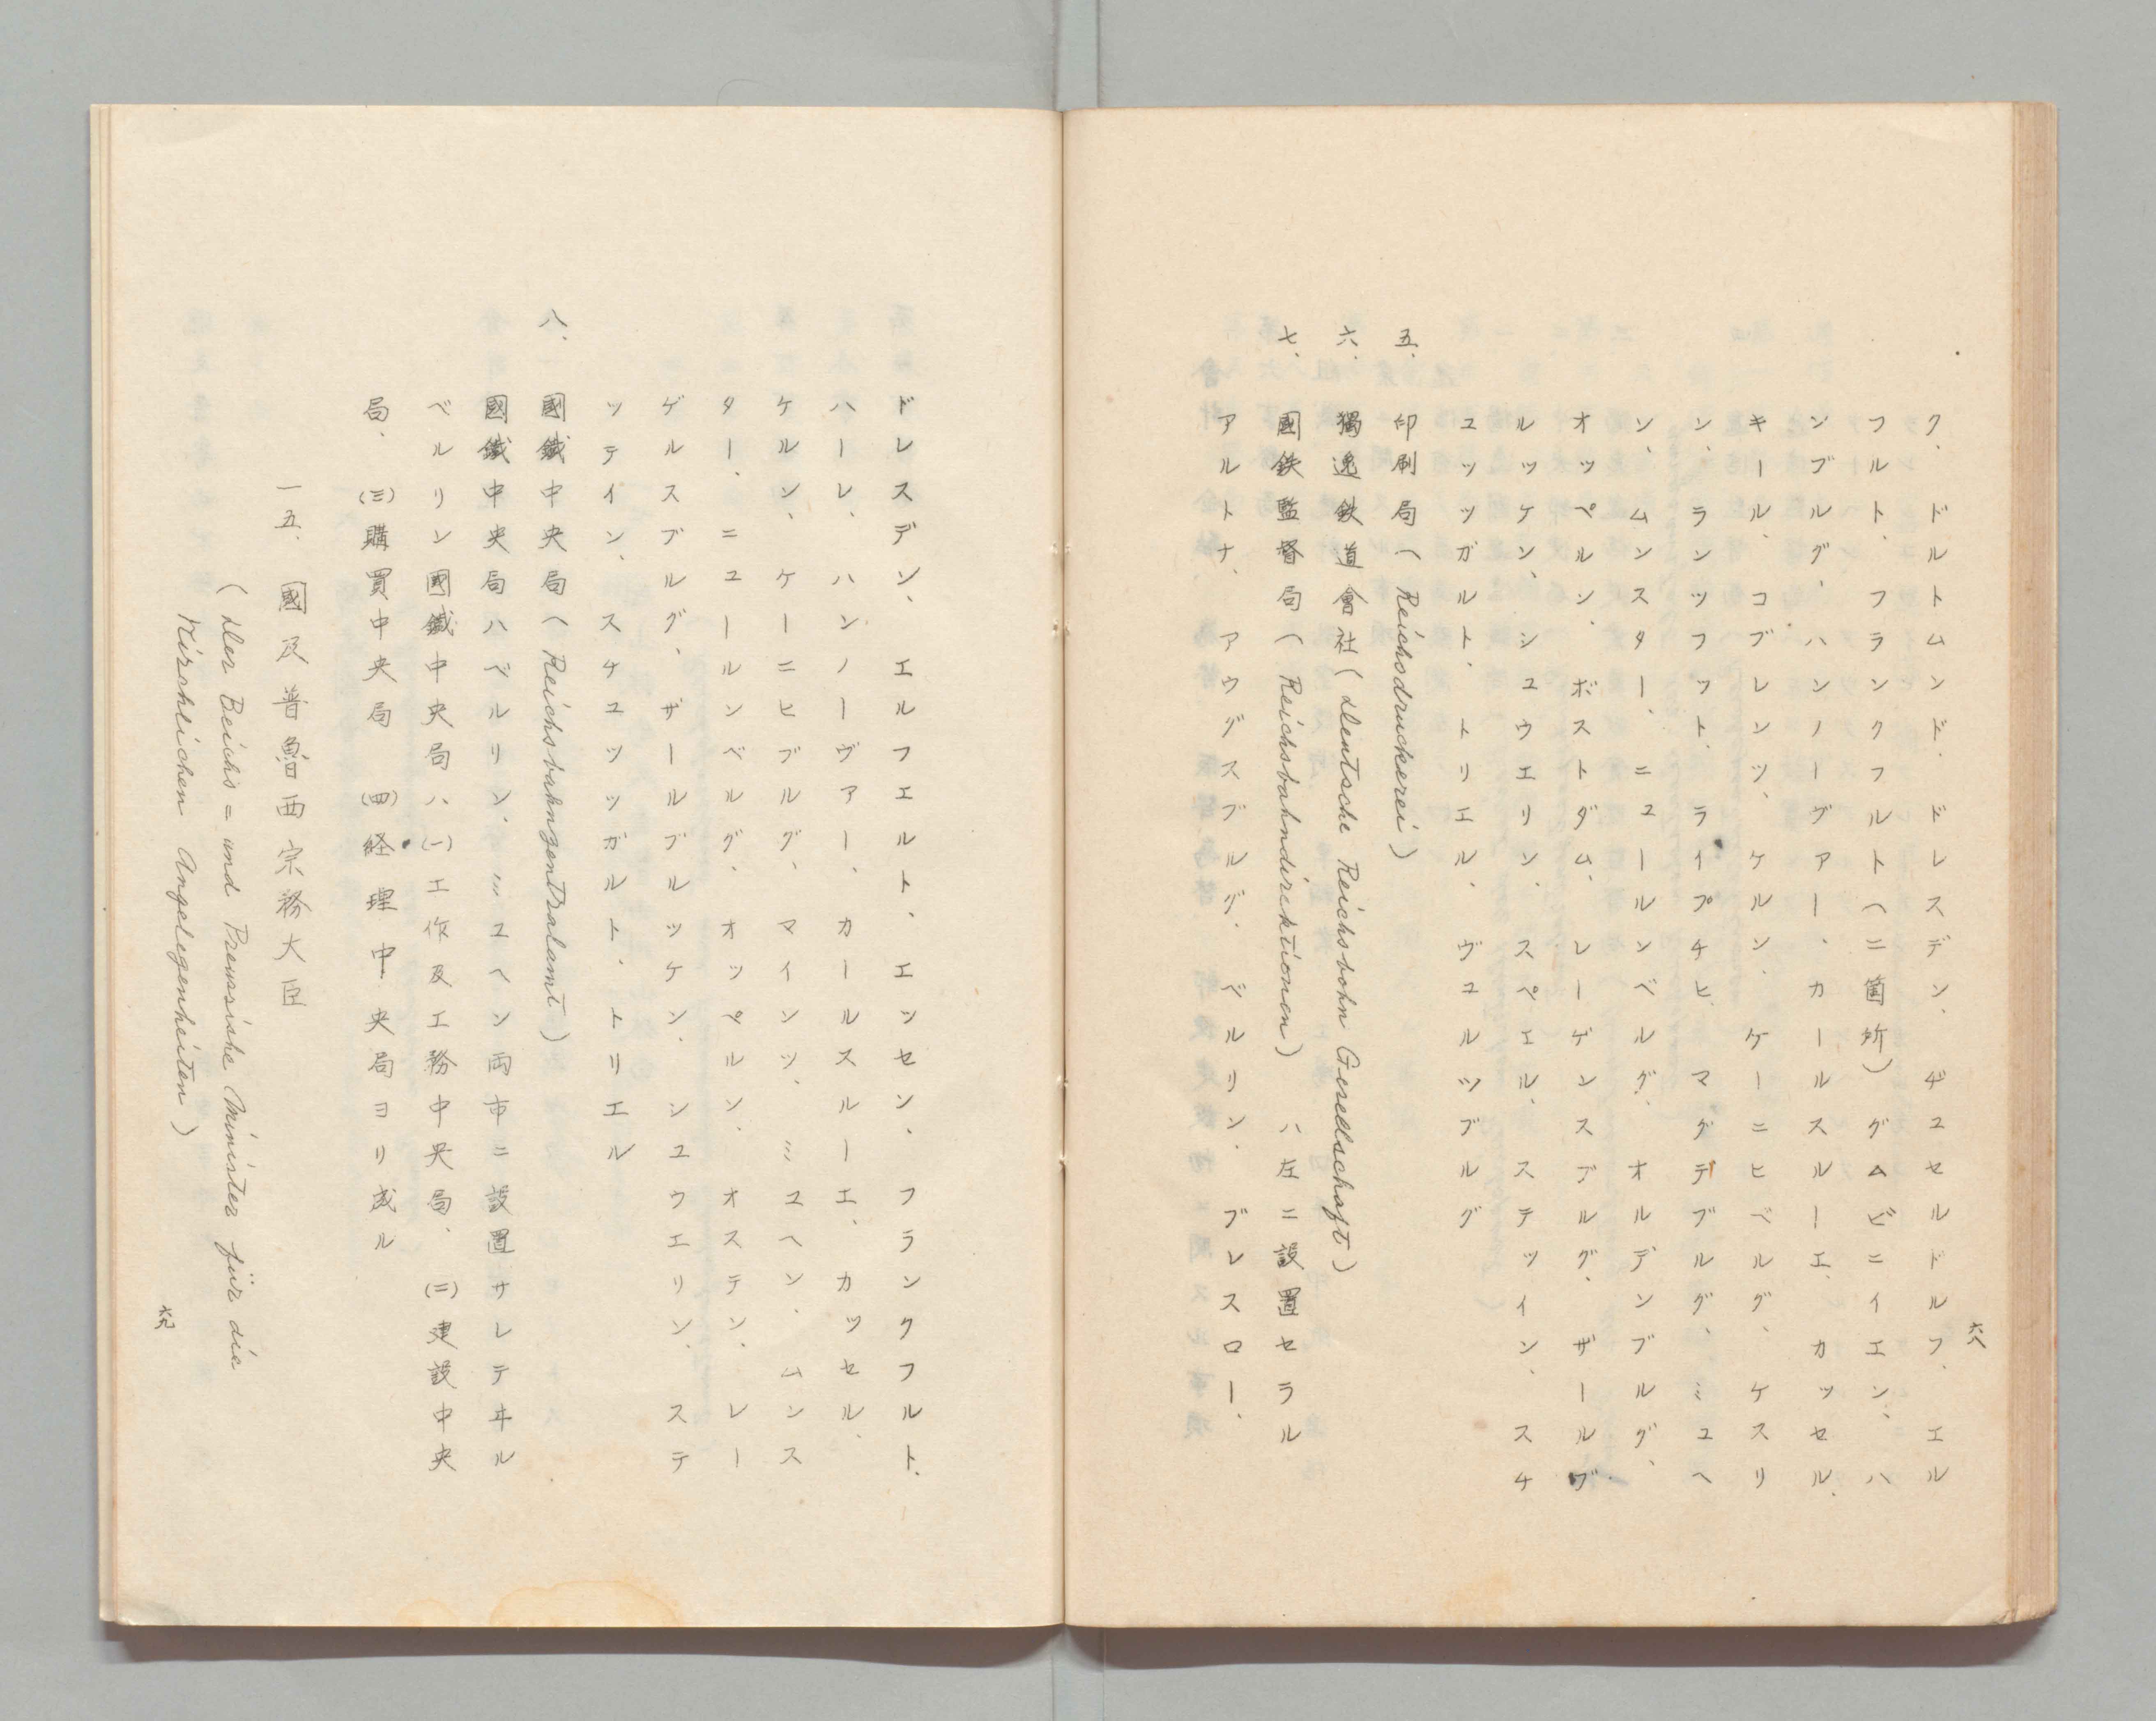 六八
ク、ドルトムンド、ドレスデン、ヂユセルドルフ、エル
フルト、フランクフルト(二箇所)グムビニイエン、ハ
ンブルグ、ハンノーヴアー、カールスルーエ、カッセル、
キール、コブレンツ、ケルン、ケーニヒベルグ、ケスリ
ン、ランツフット、ライプチヒ、マグデブルグ、ミユヘ
ン、ムンスター、ニユールンベルグ、オルデンブルグ、
オッペルン、ボストダム、レーゲンスブルグ、ザールブ
ルッケン、シユウエリン、スペエル、ステッイン、スチ
ユッッガルト、トリエル、ヴユルツブルグ
五、印刷局(Reichsdruckerei)
六、獨逸鉄道會社(Deutsche Reichsbohn Gesellschaft)
七、國鉄監督局(Reichsbahndirektionen)ハ左ニ設置セラル
アルトナ、アウグスブルグ、ベルリン、ブレスロー、
ドレスデン、エルフエルト、エッセン、フランクフルト、
ハーレ、ハンノーヴアー、カールスルーエ、カッセル、
ケルン、ケーニヒブルグ、マインツ、ミユヘン、ムンス
ター、ニユールンベルグ、オッペルン、オステン、レー
ゲルスブルグ、ザールブルッケン、シユウエリン、ステ
ッテイン、スチユッッガルト、トリエル
八、國鐵中央局(Reichsbahnzentralamt)
國鐵中央局ハベルリン、ミユヘン両市ニ設置サレテヰル
ベルリン國鐵中央局ハ(一)工作及工務中央局、(二)建設中央
局、(三)購買中央局 (四)経理中央局ヨリ成ル
一五、國及普魯西宗務大臣
(Der Beichs = und Preussishe Minister für die
Kirchlichen Angelegenheiten)
六九